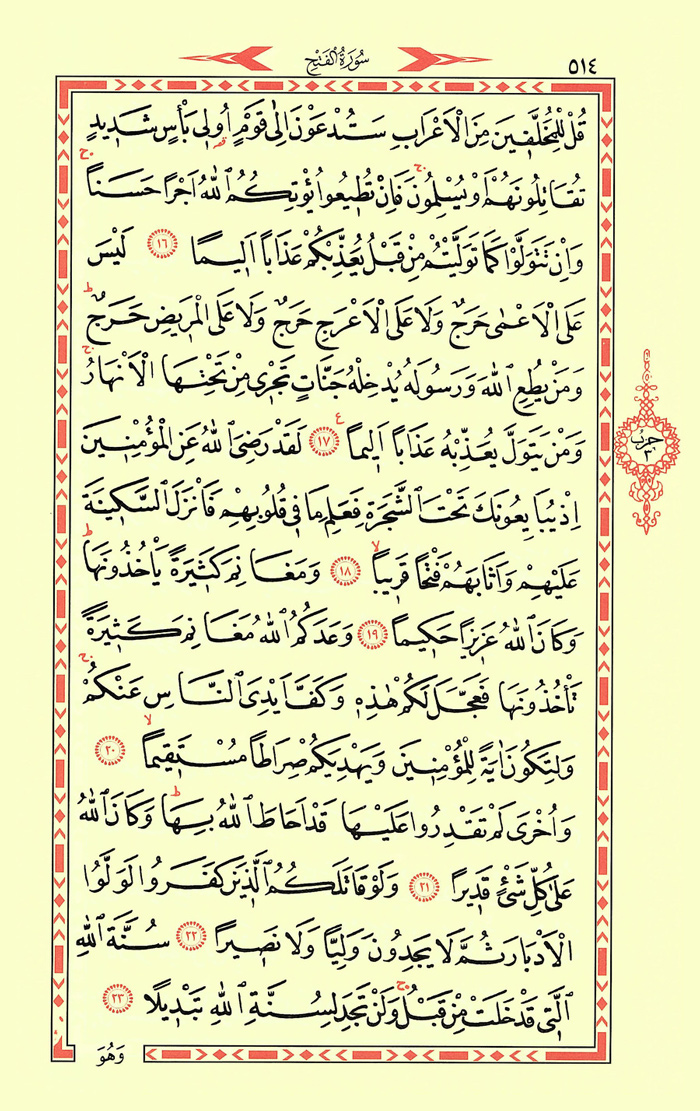 ٥١٤
سُورَةُ الْفَتْحِ
قُلْ لِلْمُخَلَّفِينَ مِنَ الْاَعْرَابِ سَتُدْعَوْنَ اِلٰى قَوْمٍ اُولِى بَأْسٍ شَدِيدٍ
تُقَاتِلُونَهُمْ اَوْ يُسْلِمُونَ فَاِنْ تُطِيعُوا يُؤْتِكُمُ اللّٰهُ اَجْرًا حَسَنًا
وَاِنْ تَتَوَلَّوْا كَمَا تَوَلَّيْتُمْ مِنْ قَبْلُ يُعَذِّبْكُمْ عَذَابًا اَلِيمًا ١٦ لَيْسَ
عَلَى الْاَعْمٰى حَرَجٌ وَلَا عَلَى الْاَعْرَجِ حَرَجٌ وَلَا عَلَى الْمَرِيضِ حَرَجٌ
وَمَنْ يُطِعِ اللّٰهَ وَرَسُولَهُ يُدْخِلْهُ جَنَّاتٍ تَجْرِى مِنْ تَحْتِهَا الْاَنْهَارُ
وَمَنْ يَتَوَلَّ يُعَذِّبْهُ عَذَابًا اَلِيمًا ١٧ لَقَدْ رَضِىَ اللّٰهُ عَنِ الْمُؤْمِنِينَ
حزب ٣
اِذْ يُبَايِعُونَكَ تَحْتَ الشَّجَرَةِ فَعَلِمَ مَا فِى قُلُوبِهِمْ فَاَنْزَلَ السَّكِينَةَ
عَلَيْهِمْ وَاَثَابَهُمْ فَتْحًا قَرِيبًا ١٨ وَمَغَانِمَ كَثِيرَةً يَأْخُذُونَهَا
وَكَانَ اللّٰهُ عَزِيزًا حَكِيمًا ١٩ وَعَدَكُمُ اللّٰهُ مَغَانِمَ كَثِيرَةً
تَأْخُذُونَهَا فَعَجَّلَ لَكُمْ هٰذِهِ وَكَفَّ اَيْدِىَ النَّاسِ عَنْكُمْ
وَلِتَكُونَ اٰيَةً لِلْمُؤْمِنِينَ وَيَهْدِيَكُمْ صِرَاطًا مُسْتَقِيمًا ٢٠
وَاُخْرٰى لَمْ تَقْدِرُوا عَلَيْهَا قَدْ اَحَاطَ اللّٰهُ بِهَا وَكَانَ اللّٰهُ
عَلٰى كُلِّ شَىْءٍ قَدِيرًا ٢١ وَلَوْ قَاتَلَكُمُ الَّذِينَ كَفَرُوا لَوَلَّوُا
الْاَدْبَارَ ثُمَّ لَا يَجِدُونَ وَلِيًّا وَلَا نَصِيرًا ٢٢ سُنَّةَ اللّٰهِ
الَّتِى قَدْ خَلَتْ مِنْ قَبْلُ وَلَنْ تَجِدَ لِسُنَّةِ اللّٰهِ تَبْدِيلًا ٢٣
وَهُوَ